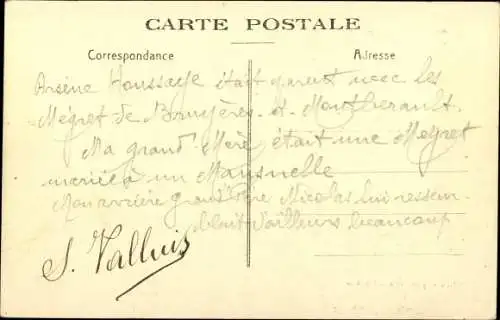 CARTE POSTALE
Correspondance
Adresse
Arsène Houssaye était parent avec les
Mégret de Bruyères et Montberault.
Ma grand'Mère était une Mégret
mariée à un
Mon arrière grand'Père Nicolas lui ressem-
blait d'ailleurs beaucoup